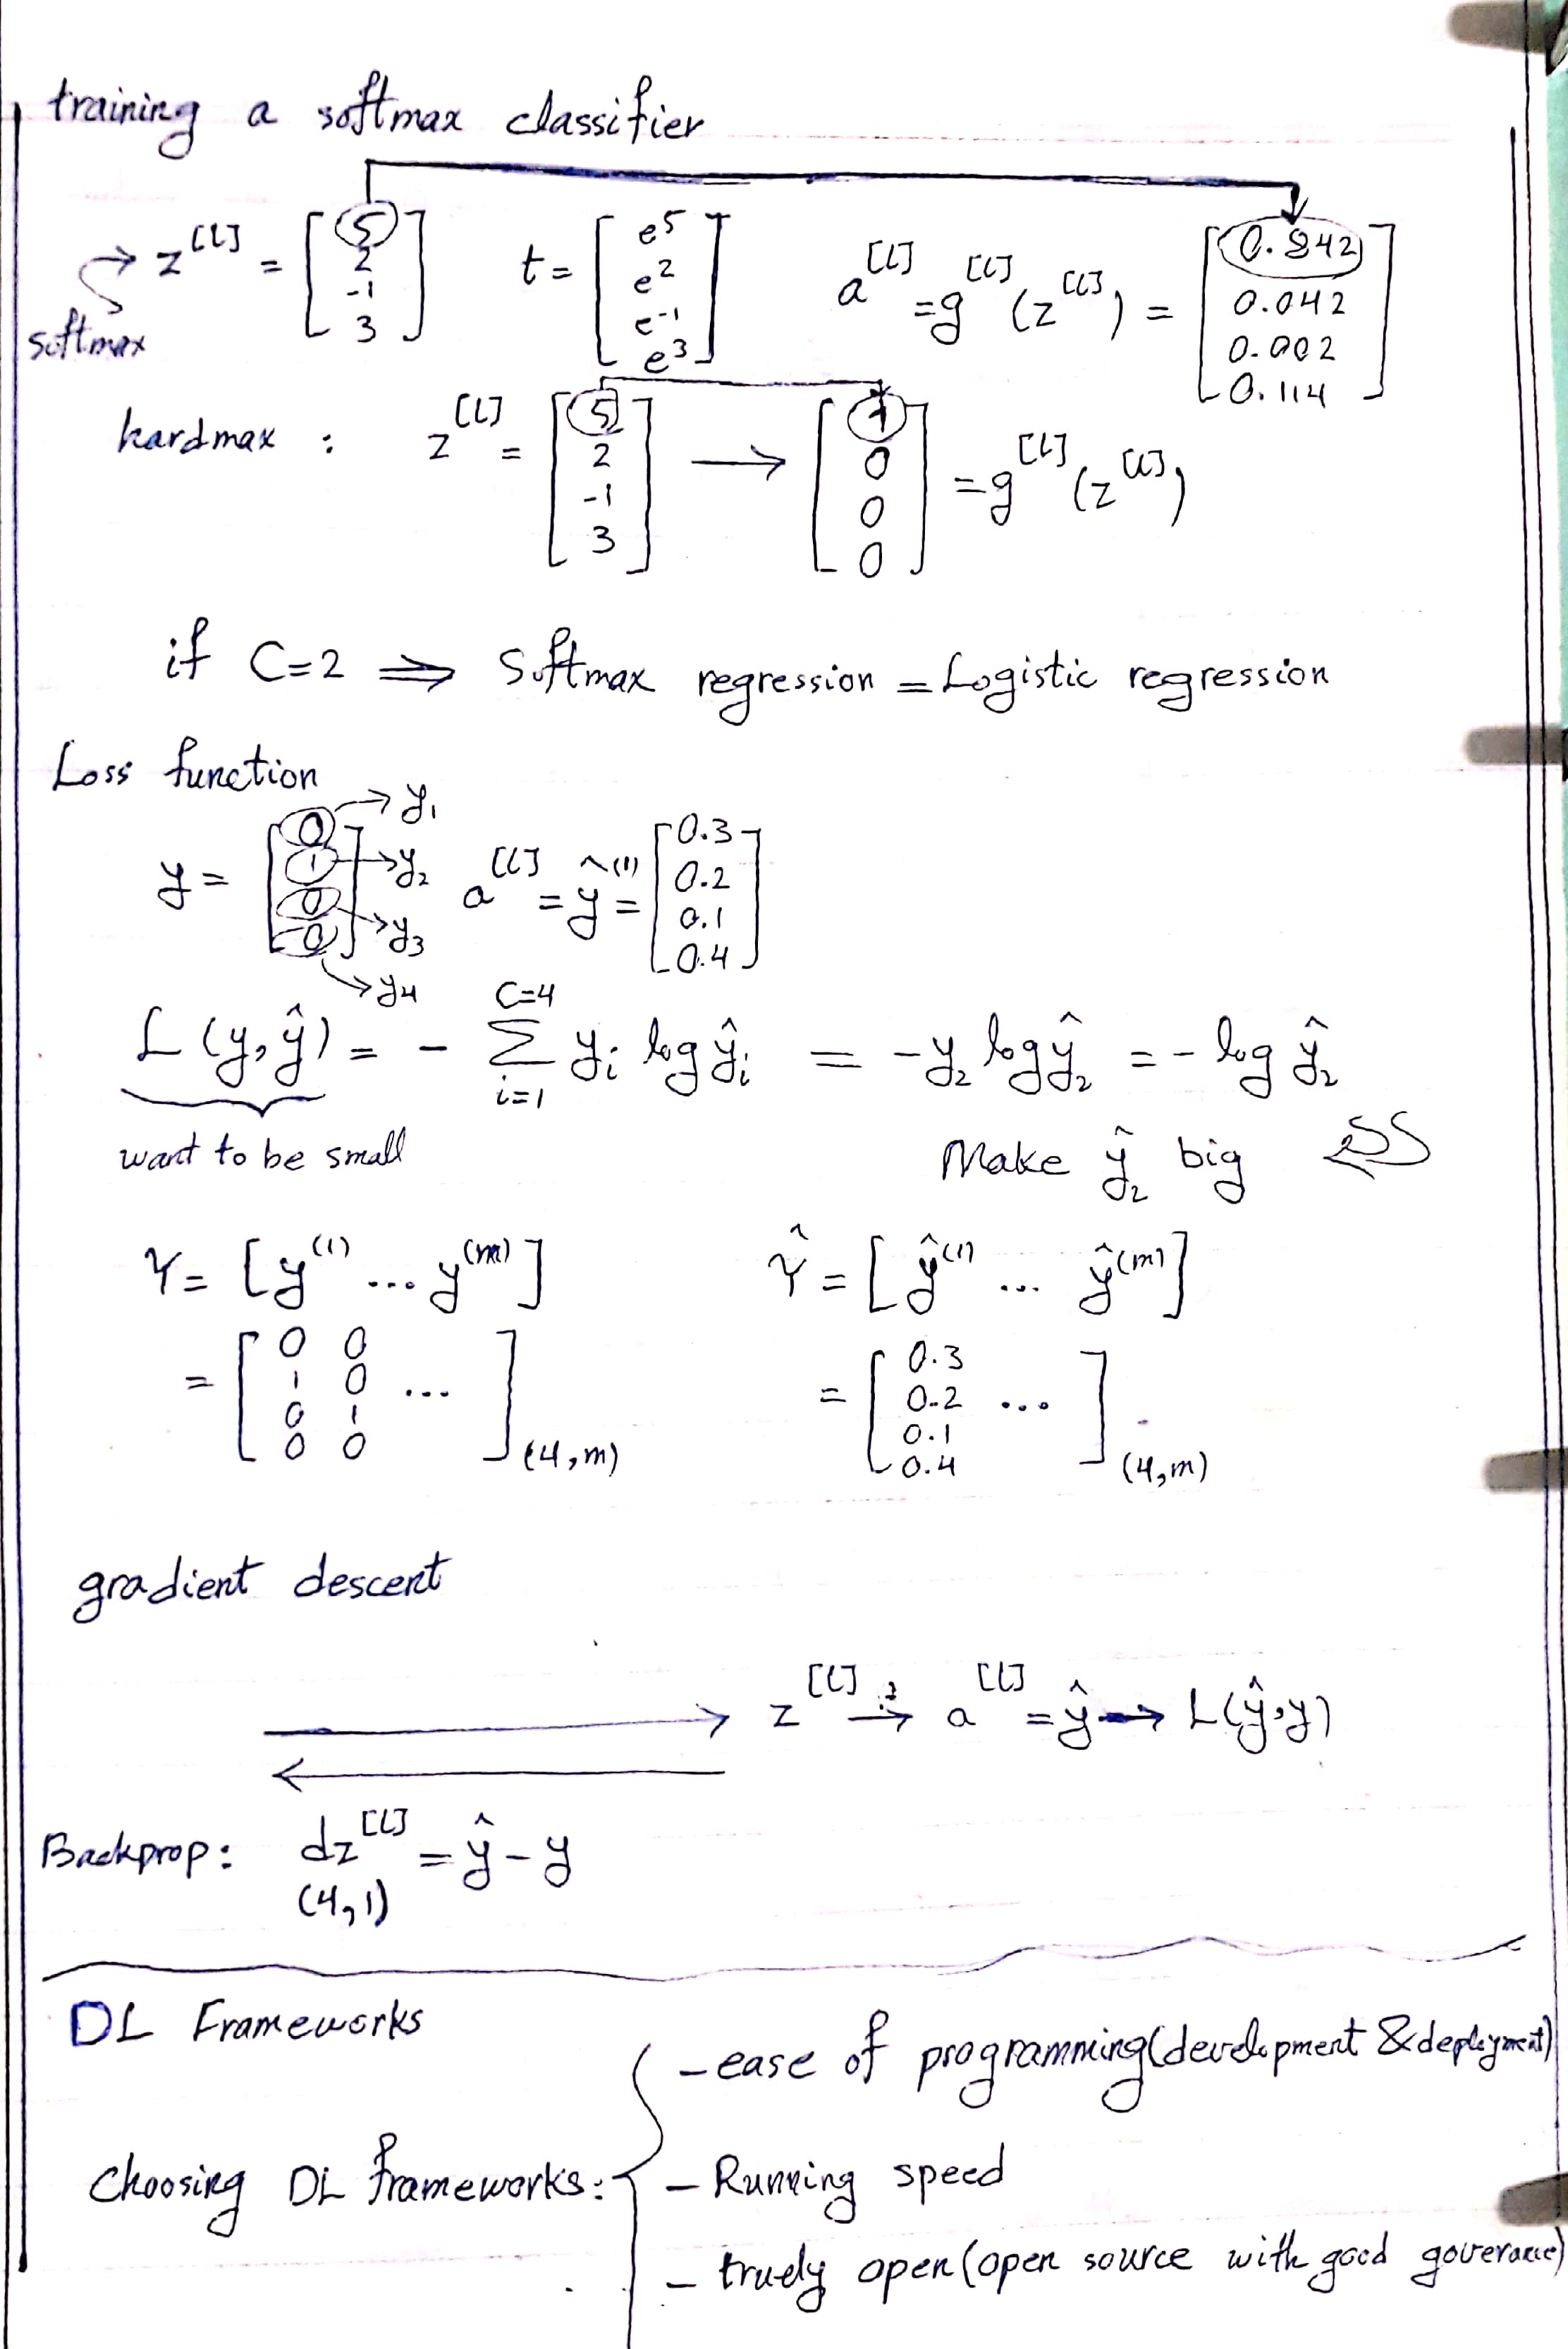 training a softmax classifier
softmax → z^[L] = [5 2 -1 3] t = [e^5 e^2 e^-1 e^3] a^[L] = g^[L](z^[L]) = [0.842 0.042 0.002 0.114]
hardmax : z^[L] = [5 2 -1 3] → [1 0 0 0] = g^[L](z^[L])
if C=2 ⇒ Softmax regression = Logistic regression
Loss function
y = [0 1 0 0] → y₁ → y₂ → y₃ → y₄ a^[L] = ŷ^(1) = [0.3 0.2 0.1 0.4]
L(y,ŷ) = - Σ_{i=1}^{C=4} yᵢ log ŷᵢ = -y₂ log ŷ₂ = -log ŷ₂
want to be small Make ŷ₂ big
Y = [y^(1) ... y^(m)] Ŷ = [ŷ^(1) ... ŷ^(m)]
= [0 0 1 0 ... 0 1 0 0](4,m) = [0.3 0.2 ... 0.1 0.4](4,m)
gradient descent
z^[L] → a^[L] = ŷ → L(ŷ,y)
Backprop: dz^[L] = ŷ - y
(4,1)
DL Frameworks
- ease of programming (development & deployment)
Choosing DL frameworks: - Running speed
- truely open (open source with good goverance)